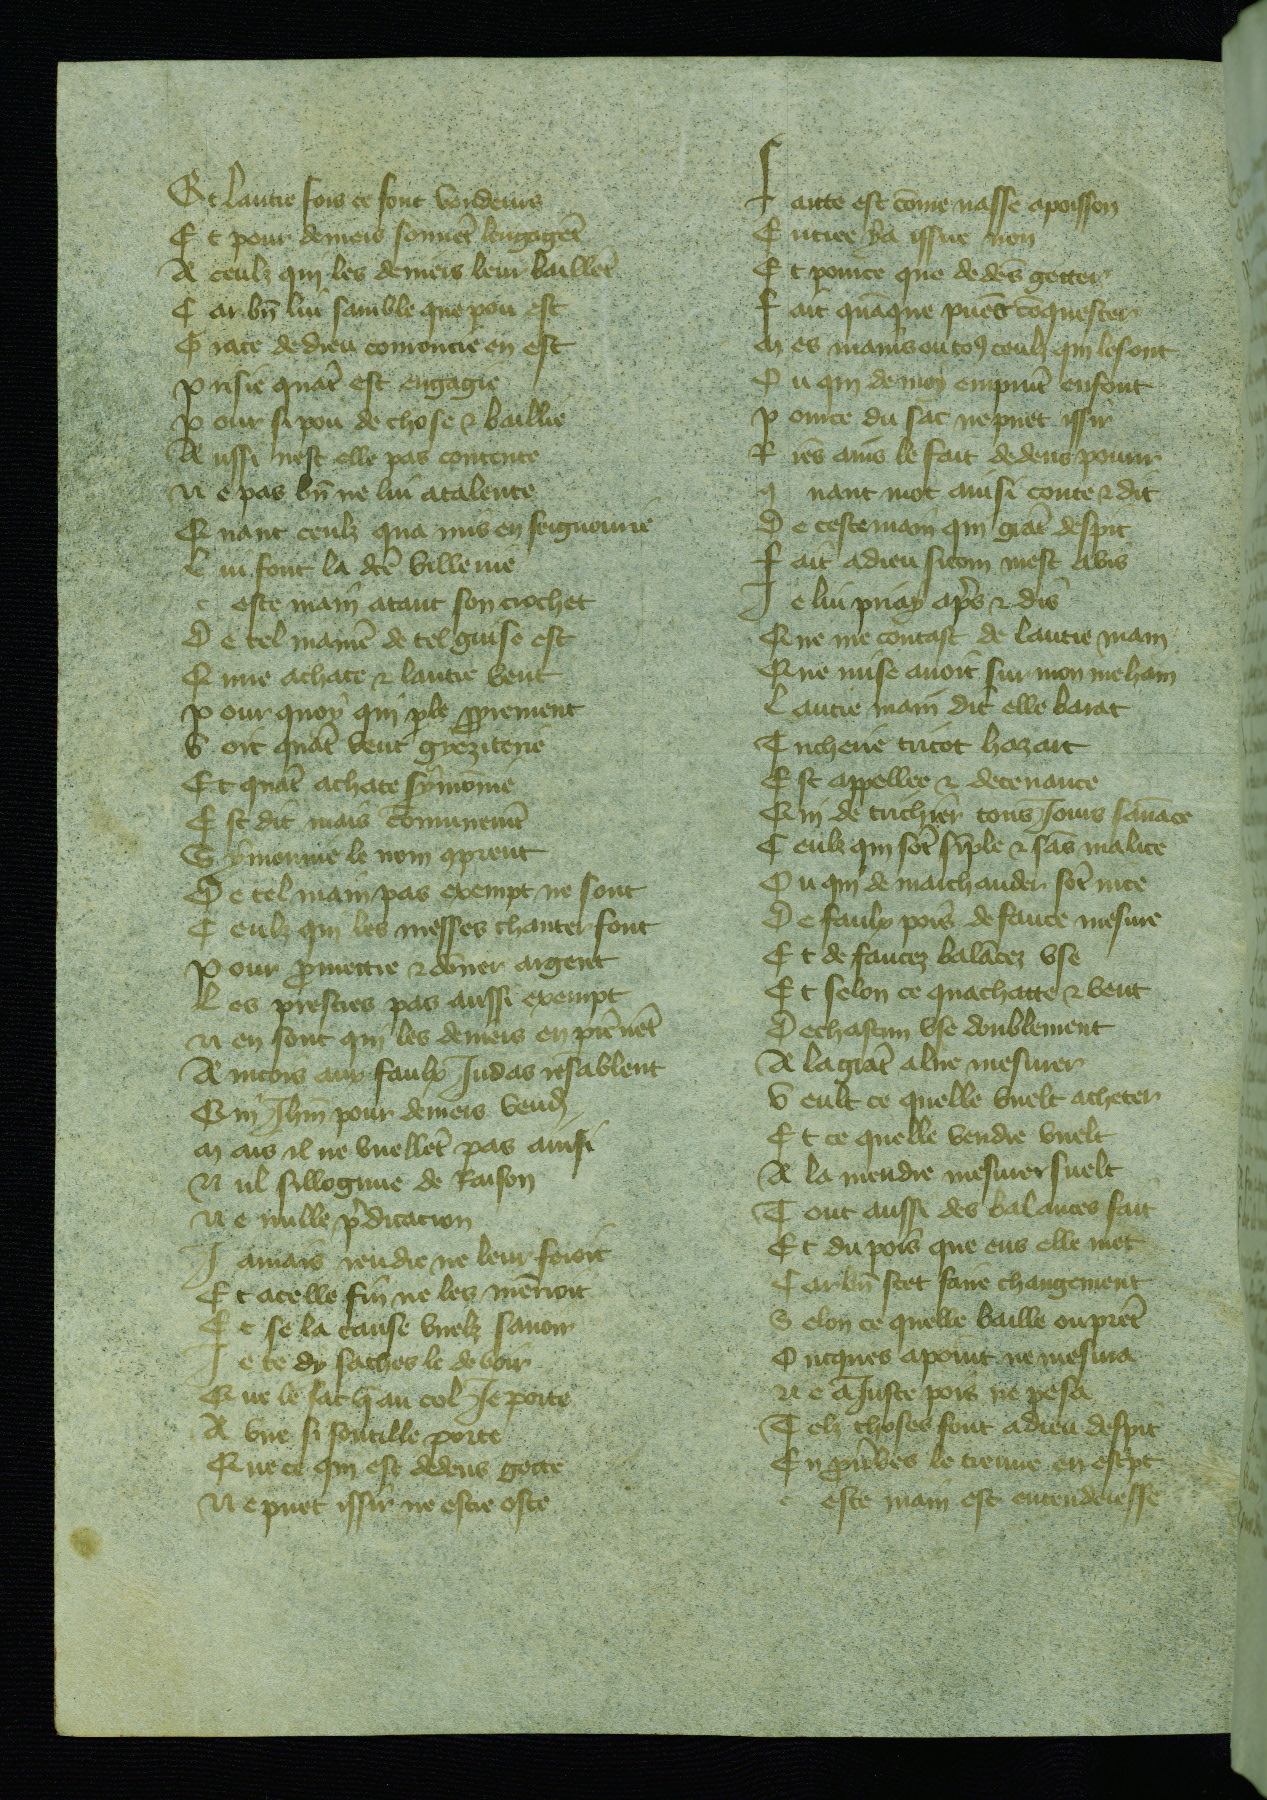 Et lautre fois ce sont vendeurs
Et pour deniers souuēt lengagēt
A ceulz qui les deniers leur baillēt
Car bn̄ lui samble que pou est
Grace de dieu comoncie en est
Prisie quāt est engagie
Pour si pou de chose & baillie
Aussi nest elle pas contente
Ne pas bn̄ ne lui atalente
Quant ceulz qua mis en seignourie
Lui font la dc̄e villenie
ceste main atant son crochet
De tel maniē de tel guise est
Qune achate & lautre vent
Pour quoy qui ꝑle ꝓprement
Soit quāt vent greziterie
Et quāt achate symonie
Est dit mais cōmunemēt
Symonnie le nom ꝯprent
De tel main pas exempt ne sont
Ceulz qui les messes chanter font
Pour ꝓmettre & dōner argent
Les prestres pas aussi exempt
Nen sont qui les deniers en prēnēt
Aincois aux faulx Judas resāblent
Qui Jhm̄ pour deniers vendi
Mais il ne vuellēt pas ainsi
Nul sillogime de Raison
Ne nulle p̄dicacion
Jamais rendre ne leur feroit
Et a celle fin ne les mēroit
Et se la cause vuelz sauoir
Je te dy saches le de voir
Que le sac qͥ au col Je porte
A vne si soutille porte
Que ce qui est dedens gette
Ne puet issir ne estre oste
Faitte est cōme nasse a poisson
Entree y a issue non
Et pource que dedēs getter
Fait quāque puēt cōquester
Mes mains ou toꝯ ceulz qui le sont
Ou qui de moy emprūt en font
Pource du sac ne puet issir
Riēs ains le fait dedens pourir
quant mot ainsi conte & dit
De ceste main qui grāt despit
Fait a dieu sicom mest avis
Je lui priay ap̄s & dis
Que me contast de lautre main
Que mise auoit sur mon mehain
Lautre main dit elle barat
Tricherie tricot hazart
Est appellee & deceuance
Qui de trichier tous Jours sauāce
Ceulz qui sōt sīple & sās malice
Ou qui de marchander sōt nice
De faulx pois de fauce mesure
Et de faucez balācez vse
Et selon ce quachatte & vent
De chascun vse doublement
A la grāt alne mesurer
Veult ce quelle vuelt acheter
Et ce quelle vendre vuelt
A la mendre mesurer suelt
Tout aussi des balances fait
Et du pois que ens elle met
Car bn̄ scet faire changement
Selon ce quelle baille ou prēt
Oncques a point ne mesura
Ne a Juste pois ne pesa
Telz choses sont a dieu despit
En ꝓūbes le treuue en escpt
ceste main est entenderesse